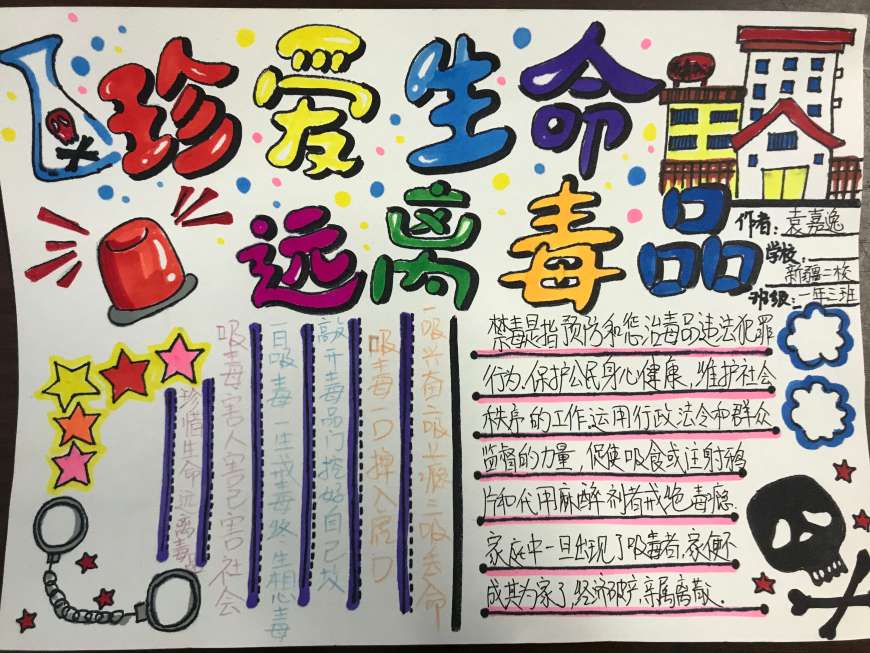 珍爱生命
远离毒品
作者：袁嘉逸
学校：
新疆二校
班级：一年三班
一吸兴奋二吸上瘾三吸丧命
吸毒一口掉入虎口
敲开毒品门挖好自己坟
一日吸毒一生戒毒终生想毒
吸毒害人害己害社会
珍惜生命远离毒
禁毒是指预防和惩治毒品违法犯罪
行为.保护公民身心健康，维护社会
秩序的工作.运用行政法令和群众
监督的力量，促使吸食或注射鸦
片和代用麻醉剂者戒绝毒瘾.
家庭中一旦出现了吸毒者.家便不
成其为家了,经济破产.亲属离散.